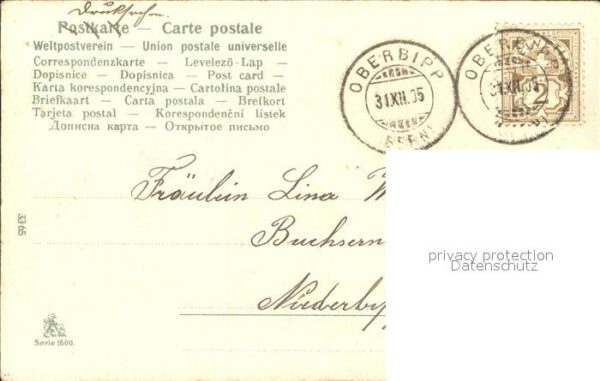 Drucksachen.
Postkarte — Carte postale
Weltpostverein — Union postale universelle
Correspondenzkarte — Levelező-Lap —
Dopisnice — Dopisnica — Post card —
Karta korespondencyjna — Cartolina postale
Briefkaart — Carta postala — Brefkort
Tarjeta postal — Korespondenční lístek
Дописна карта — Открытое письмо
OBERBIPP
31.XII.05
(BERN)
31.XII.05
2
Fräulein Lina
Buchsern
Niederbipp
privacy protection
Datenschutz
3365
Serie 1600.